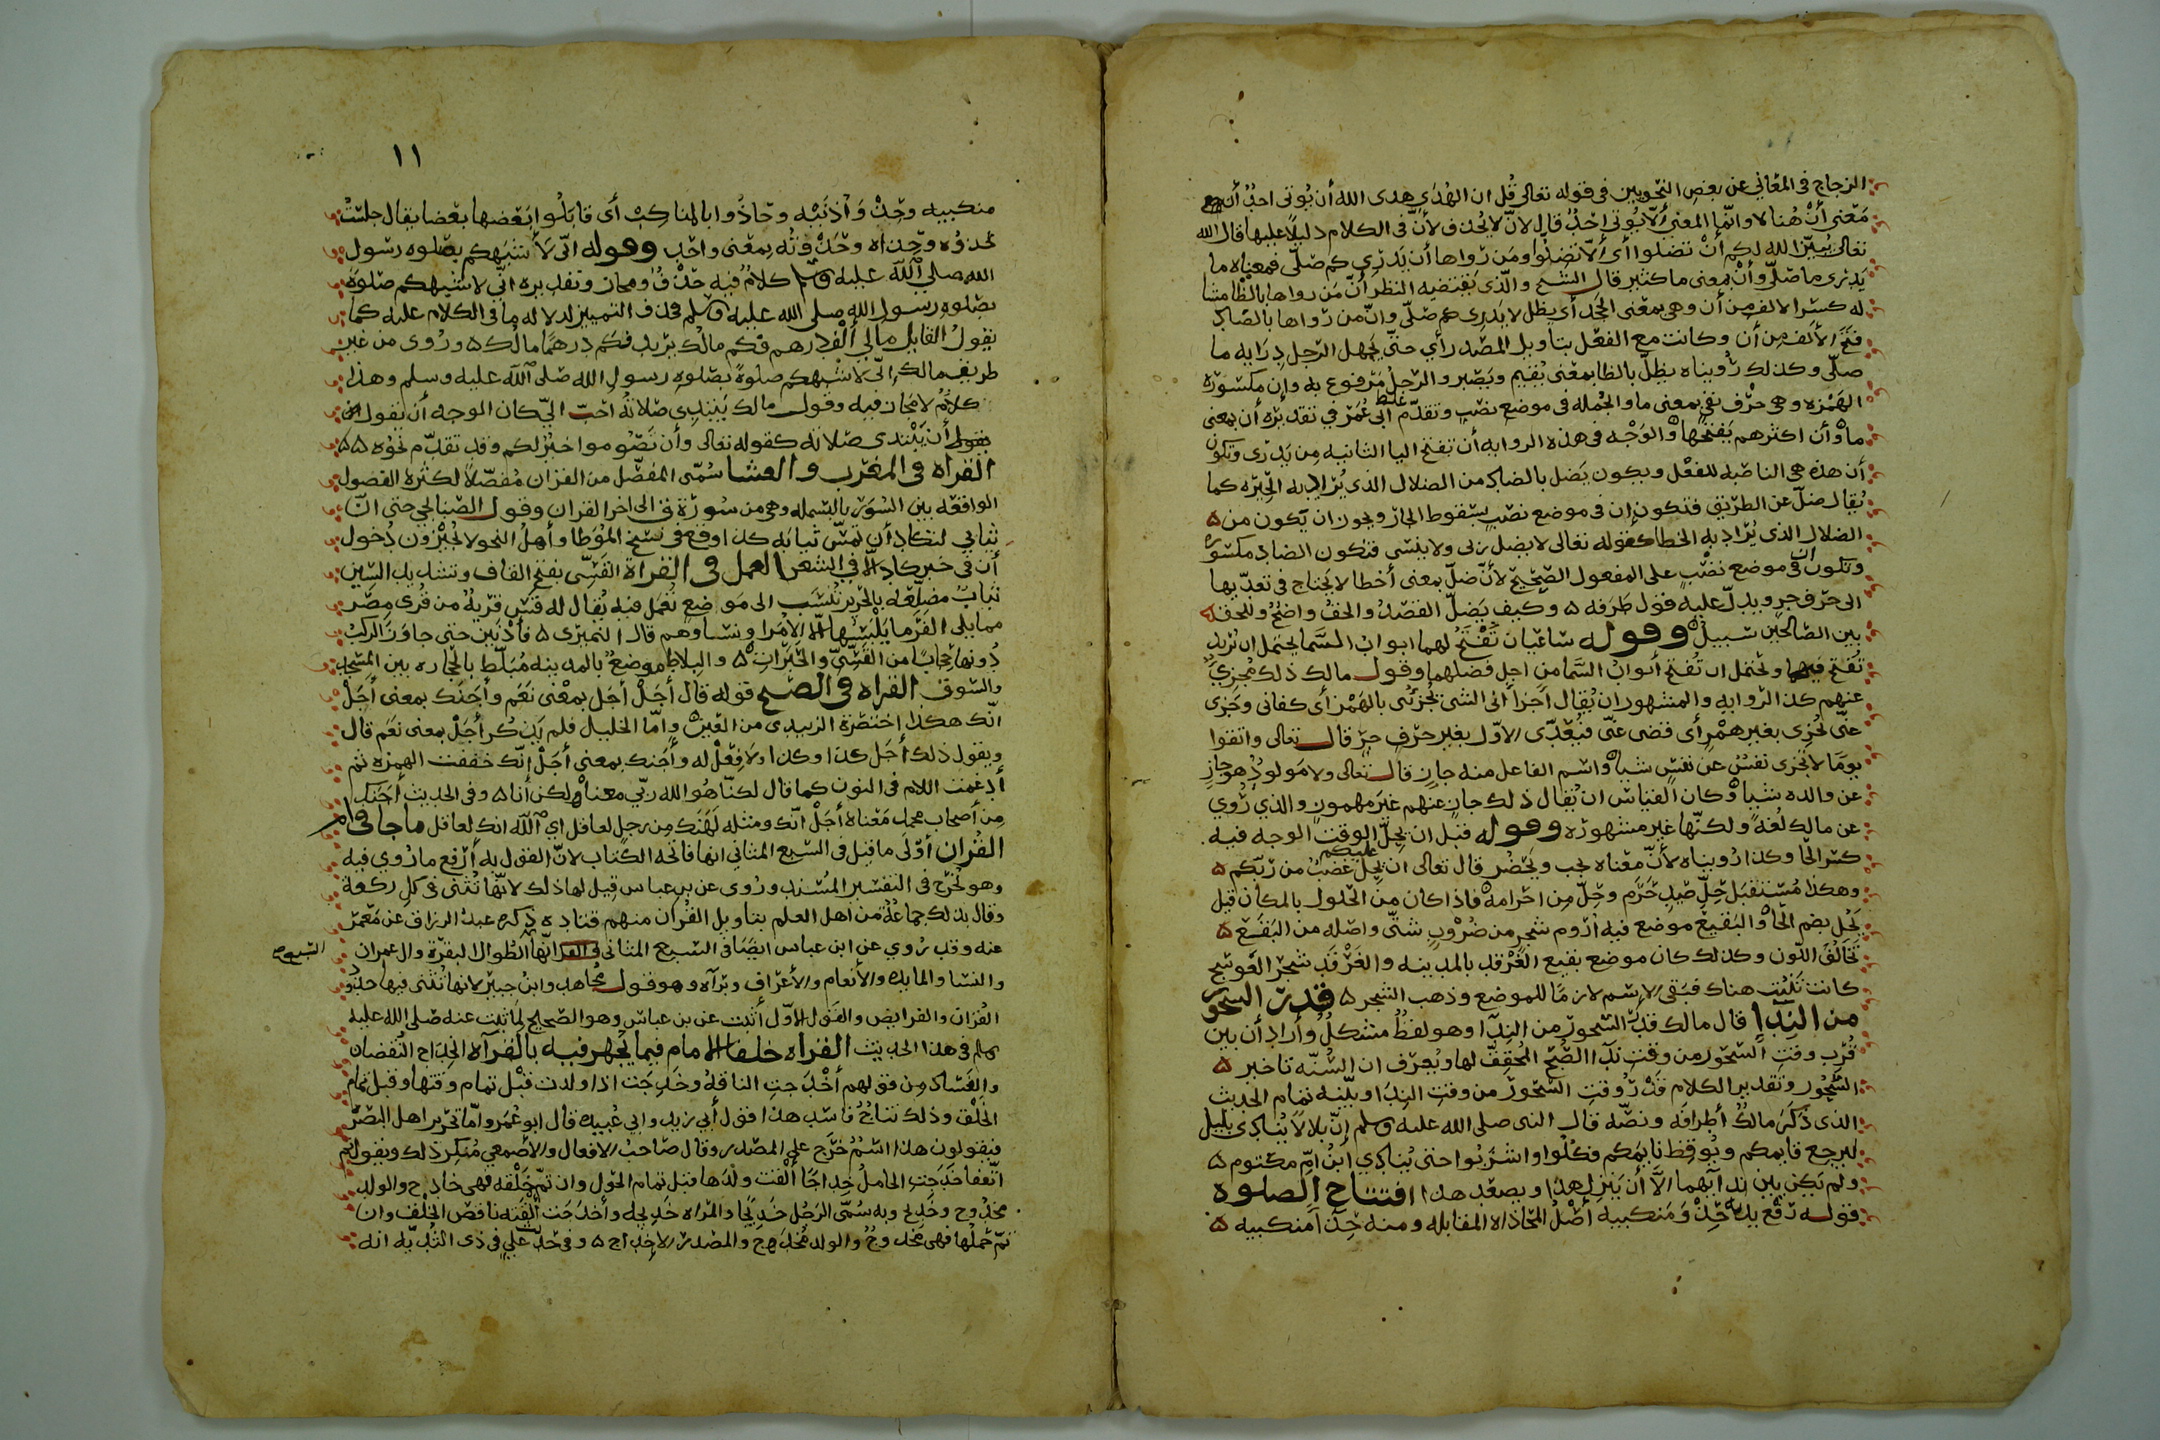 الزجاج في المعاني عن بعض النحويين في قوله تعالى قل ان الهدى هدى الله أن يوتى احدٌ أن
معنى أنْ هُنا لا وانّما المعنى ألاّ يُوتى احَدٌ قال لانّ لا تحذف لأنّ في الكلام دليلاً عليها قال الله
تعالى يُبيّن الله لكم أنْ تضلوا أي ألاّ تضلّوا ومَن رواها أن يَدْرى كم صلّى فمعناه ما
يَدرى ما صلّى وأنْ بمعنى ما كثير قال الشيخ والّذى يَقتضيه النظر أنّ مَن رواها بالظا مشالة
له كسر الالف من أن وهي بمعنى الجحد أي يظل لا يدرى كم صلّى وانّ من رواها بالضّاد
فتح الألف من أن وكانت مع الفعل بتأويل المصدر أي حتّى يجهل الرّجل دِرَايه ما
صلّى وكذلك رُوِيناه يظلّ بالظا بمعنى يُقيم ويَصِير والرّجلُ مَرْفوع به وإن مكسورة
الهَمْزه وهي حرْف نفي بمعنى ما والجُمله في موضع نصْبٍ وتقدّم غلط ابى عُمَر في تقديره أن بمعنى
ما وأن اكثرهم يَفتحُها والوَجْه في هذه الروايه أن تفتح اليا الثانيه مِن يَدرى وتكون
أن هذه هي الناصبه للفعْل ويكون يَضل بالضاد من الضلال الذي يُرَاد به الحِيْره كما
يُقال ضلّ عن الطرِيق فتكون إن في موضع نصْبٍ بسُقوط الجارّ ويجوز ان يكون من ۵
الضلال الذي يُرَاد به الخطا كقوله تعالى لا يضل ربى ولا ينسى فتكون الضاد مكسورة
وتكون أن في موضع نصْبٍ على المفعول الصّحِيح لأنّ ضلّ بمعنى أخطا لا يحتاج في تعدّيها
الى حرْف جرٍ ويدلّ عليه قول طَرَفه ۵ وكيف يَضِلّ القصْدُ والحقّ واضحٌ وللحقّ
بين الصّالحين سَبيلُ وقوله سَاعَتان تُفْتَحُ لهما ابوابُ السَّما يحتمل ان يُرِيد
تُفتح فيهما ويحتمل ان تُفتح أبوابُ السَّما من اجل فضلهما وقول مالك ذلك مُجْزِيٌ
عنهم كذا الرّوايه والمشهور ان يُقال أجزأَ انّى الشئ يُجزئنى بالهَمْز أي كفانى وجَزى
عنّى يُجزى بغير همْز أي قضى عنّى فيُعَدّى الأوّل بغير حَرْفِ جرّ قال تعالى واتقوا
يومًا لا تجْزى نفسٌ عن نفسٍ شيأً واسم الفاعل منه جازٍ قال تعالى ولا مَولودٌ هو جازٍ
عن والده شيأً وكان القياس ان يُقال ذلك جازٍ عنهم غير مهموزٍ والذى رُوى
عن مالك لغةٌ ولكنّها غير مشهوره وقوله قبل ان يحِلّ الوقت الوجه فيه
كسر الحا وكذا رُويناه لأنّ مَعْناه يجب ويَحْضُر قال تعالى ان يحِلّ عليكم غضبٌ من ربّكم ۵
وهكذا مُسْتقبَل حِلّ صيد حَرَم وحِلّ مِن احْرامه فاذا كان مِن الحُلول بالمكان قيل
يَحُل بضم الحَا والبَقيع موضع فيه ارُوم شجرٍ من ضُرُوبٍ شتّى واصله من البَقَع ۵
تخالُف اللّون وكذلك كان موضع بقيع الغَرْقد بالمدينه والغَرْقد شجَر العَوسَج
كانت تَنْبُت هناك فبَقى الاسم لازمًا للموضع وذهب الشجر ۵ قدر السحور
من النِّدآ قال مالك قدْر السّحور من النِّدا وهو لفظٌ مُشكلٌ وأراد أن بين
قُرب وقت السّحور من وقت ندآ الصُّبْح المُحقّق لها ويُعرّف ان السُّنّه تاخير ۵
السّحُور وتقدير الكلام قدْر وُقت السّحور من وقت النِدا ويبيّنه تمام الحديث
الذى ذَكَرَ مالكٌ أطرافه ونصّه قال النبى صلى الله عليه وسلم إنّ بلالاً يُنادى بليل
ليرجع قايمكم ويُوقظ نايمكم فكُلُوا واشرَبوا حتى يُنادى ابنُ امّ مكتوم ۵
ولم يكن بين ندآيهما الاّ أن يَنزِل هذا ويصعَد هذا افتتاح الصلوه
قوله رَفع يديه حَذْوَ مَنكبيه أصْلُ المحاذاه المقابله ومنه حِذَآ مَنكبيه ۵
١١
منكبيه وحَذْوَ أذنَيْه وحاذُوا بالمناكب أي قابَلُوا بعضها بَعضا يقال جلسْتُ
بحَذْوِه وحِذاه وحَذْوَتُه بمعنى واحد وقوله انّى لأشبهكم بصلوه رسول
الله صلى الله عليه وسلم كلامٌ فيه حذْفٌ ومجاز وتقديره انّى لاشبهكم صَلوةً
بصلوه رسول الله صلى الله عليه وسلم فحذف التمييز لدلاله ما في الكلام عليه كما
يقول القايل مالى ألفُ درهم فكم مالُك يريد فكم درهمًا مالُك ۵ ورُوى من غير
طريق مالك إنّى لاشبهكم صلوةً بصلوه رسول الله صلى الله عليه وسلم وهذا
كلامٌ لا مجاز فيه وقول مالك يَبتدى صلاتهُ احَبّ الىّ كان الوجه أن يقول ان
يقول أن يَبْتدى صلاته كقوله تعالى وأن تصُوموا خيرٌ لكم وقد تقدّم نحوه ۵۵
القراه في المغرب والعشا سُمّى المفصّل من القران مُفصّلاً لكثرة الفصول
الواقعه بين السُّوَر بالبسمله وهي من سُورَة ق الى اخر القران وقول الصّنابحى حتى انّ
ثيابى لتكاد أن تمسّ ثيابَه كذا وقع في نسخ المُوطا وأهلُ النحو لا يُجيْزُون دُخول
أن في خبر كاد إلاّ في الشعر العمل في القراة القَسّى بفتح القاف وتشديد السّين
ثيابٌ مضلّعه بالحرير تُنسَب الى مَوضع تُعمَل فيه يُقال له قَسّ قرْيةٌ من قُرى مِصْر
مما يلى الفَرَما يَلْبَسُها الاُمَرا ونسَاوهم قال النميرى ۵ فأدْنَين حتى جاوَزَ الركبُ
دُونها حِجابًا من القَسّىّ والحِبَراتِ ۵ والبلاط موضعٌ بالمدينه مُبَلّط بالحجاره بين المسْجد
والسّوق القراه في الصبح قوله قال أجَلْ أجَل بمعْنى نَعَم وأجَنّك بمعنى أجَلْ
انّك هكذا اختصرهُ الزبيدى من العَين وامّا الخليل فلم يَذكُر أجَلْ بمعنى نعَم قال
ويقول ذلك أجَل كذا وكذا ولا فِعْل له وأجَنك بمعنى أجَلْ إنّك خففت الهمزه ثم
أدغمت اللام في النون كما قال لكنّا هُو الله ربّى معناه لكن أنا ۵ وفي الحديث أجَنّك
مِن أصحاب محمد مَعْناه أجَلْ انّك ومثله لَهِنّك مِن رجلٍ لعاقل اي الله انك لعاقل ما جا في ام
القُران أوْلَى ما قيل في السّبع المثانى انها فاتحه الكتاب لأنّ القول به أرْفع ما رُوى فيه
وهو مُخرّج في التفسير المُسْند ورُوى عن بن عباس قيل لها ذلك لانّها تُثنى في كل ركعة
وقال بذلك جماعةٌ من اهل العلم بتاويل القُران منهم قتاده ذكره عبد الرزاق عن مَعْمَر
عنه وقد رُوى عن ابن عباس ايضًا في السبع المثانى انّها الطُّوال البقَرَة وال عمران
والنسَا والمايده والأنعام والأعراف وبَرآه وهو قول مُجاهد وابن جبير لانها تُثنى فيها حدُود
القُران والفرايض والقول الأوّل أثبت عن بن عباس وهو الصّحيح لما ثبت عنه صلى الله عليه
وسلم في هذا الحديث القراه خلف الامام فيما يجهر فيه بالقراه الخِدَاج النّقصان
والفَسَاد مِن قولهم أخْدَجتِ الناقهُ وخَدِجَت اذا ولدت قبْل تمام وقتها وقبل تمام
الخَلْق وذلك نتاجٌ فاسد هذا قول أبى زيد وابى عُبيده قال ابو عُمَر وامّا تحرير اهل البَصْرة
فيقولون هذا اسْمٌ خرّج على المصْدر وقال صَاحبُ الافعال والأصْمعى مُنكر ذلك ويقولون
اتّفقا خَدَجتِ الحاملُ خِداجًا ألقت ولدَها قبل تمام الحَول وان تمّ خَلْقه فهى خادِج والولد
مخدُوج وخَدِيج وبه سُمّى الرَجُل خَدِيجًا والمرْاه خَدِيجه وأخدَجَت القَتْه ناقص الخلْق وان
تمّ حَمْلُها فهى مُخدِجٌ والولد مُخدَج والمصدر الإخدَاج ۵ وفي حديث علىٍ في ذى الثُّدَيّه انه
السّبع